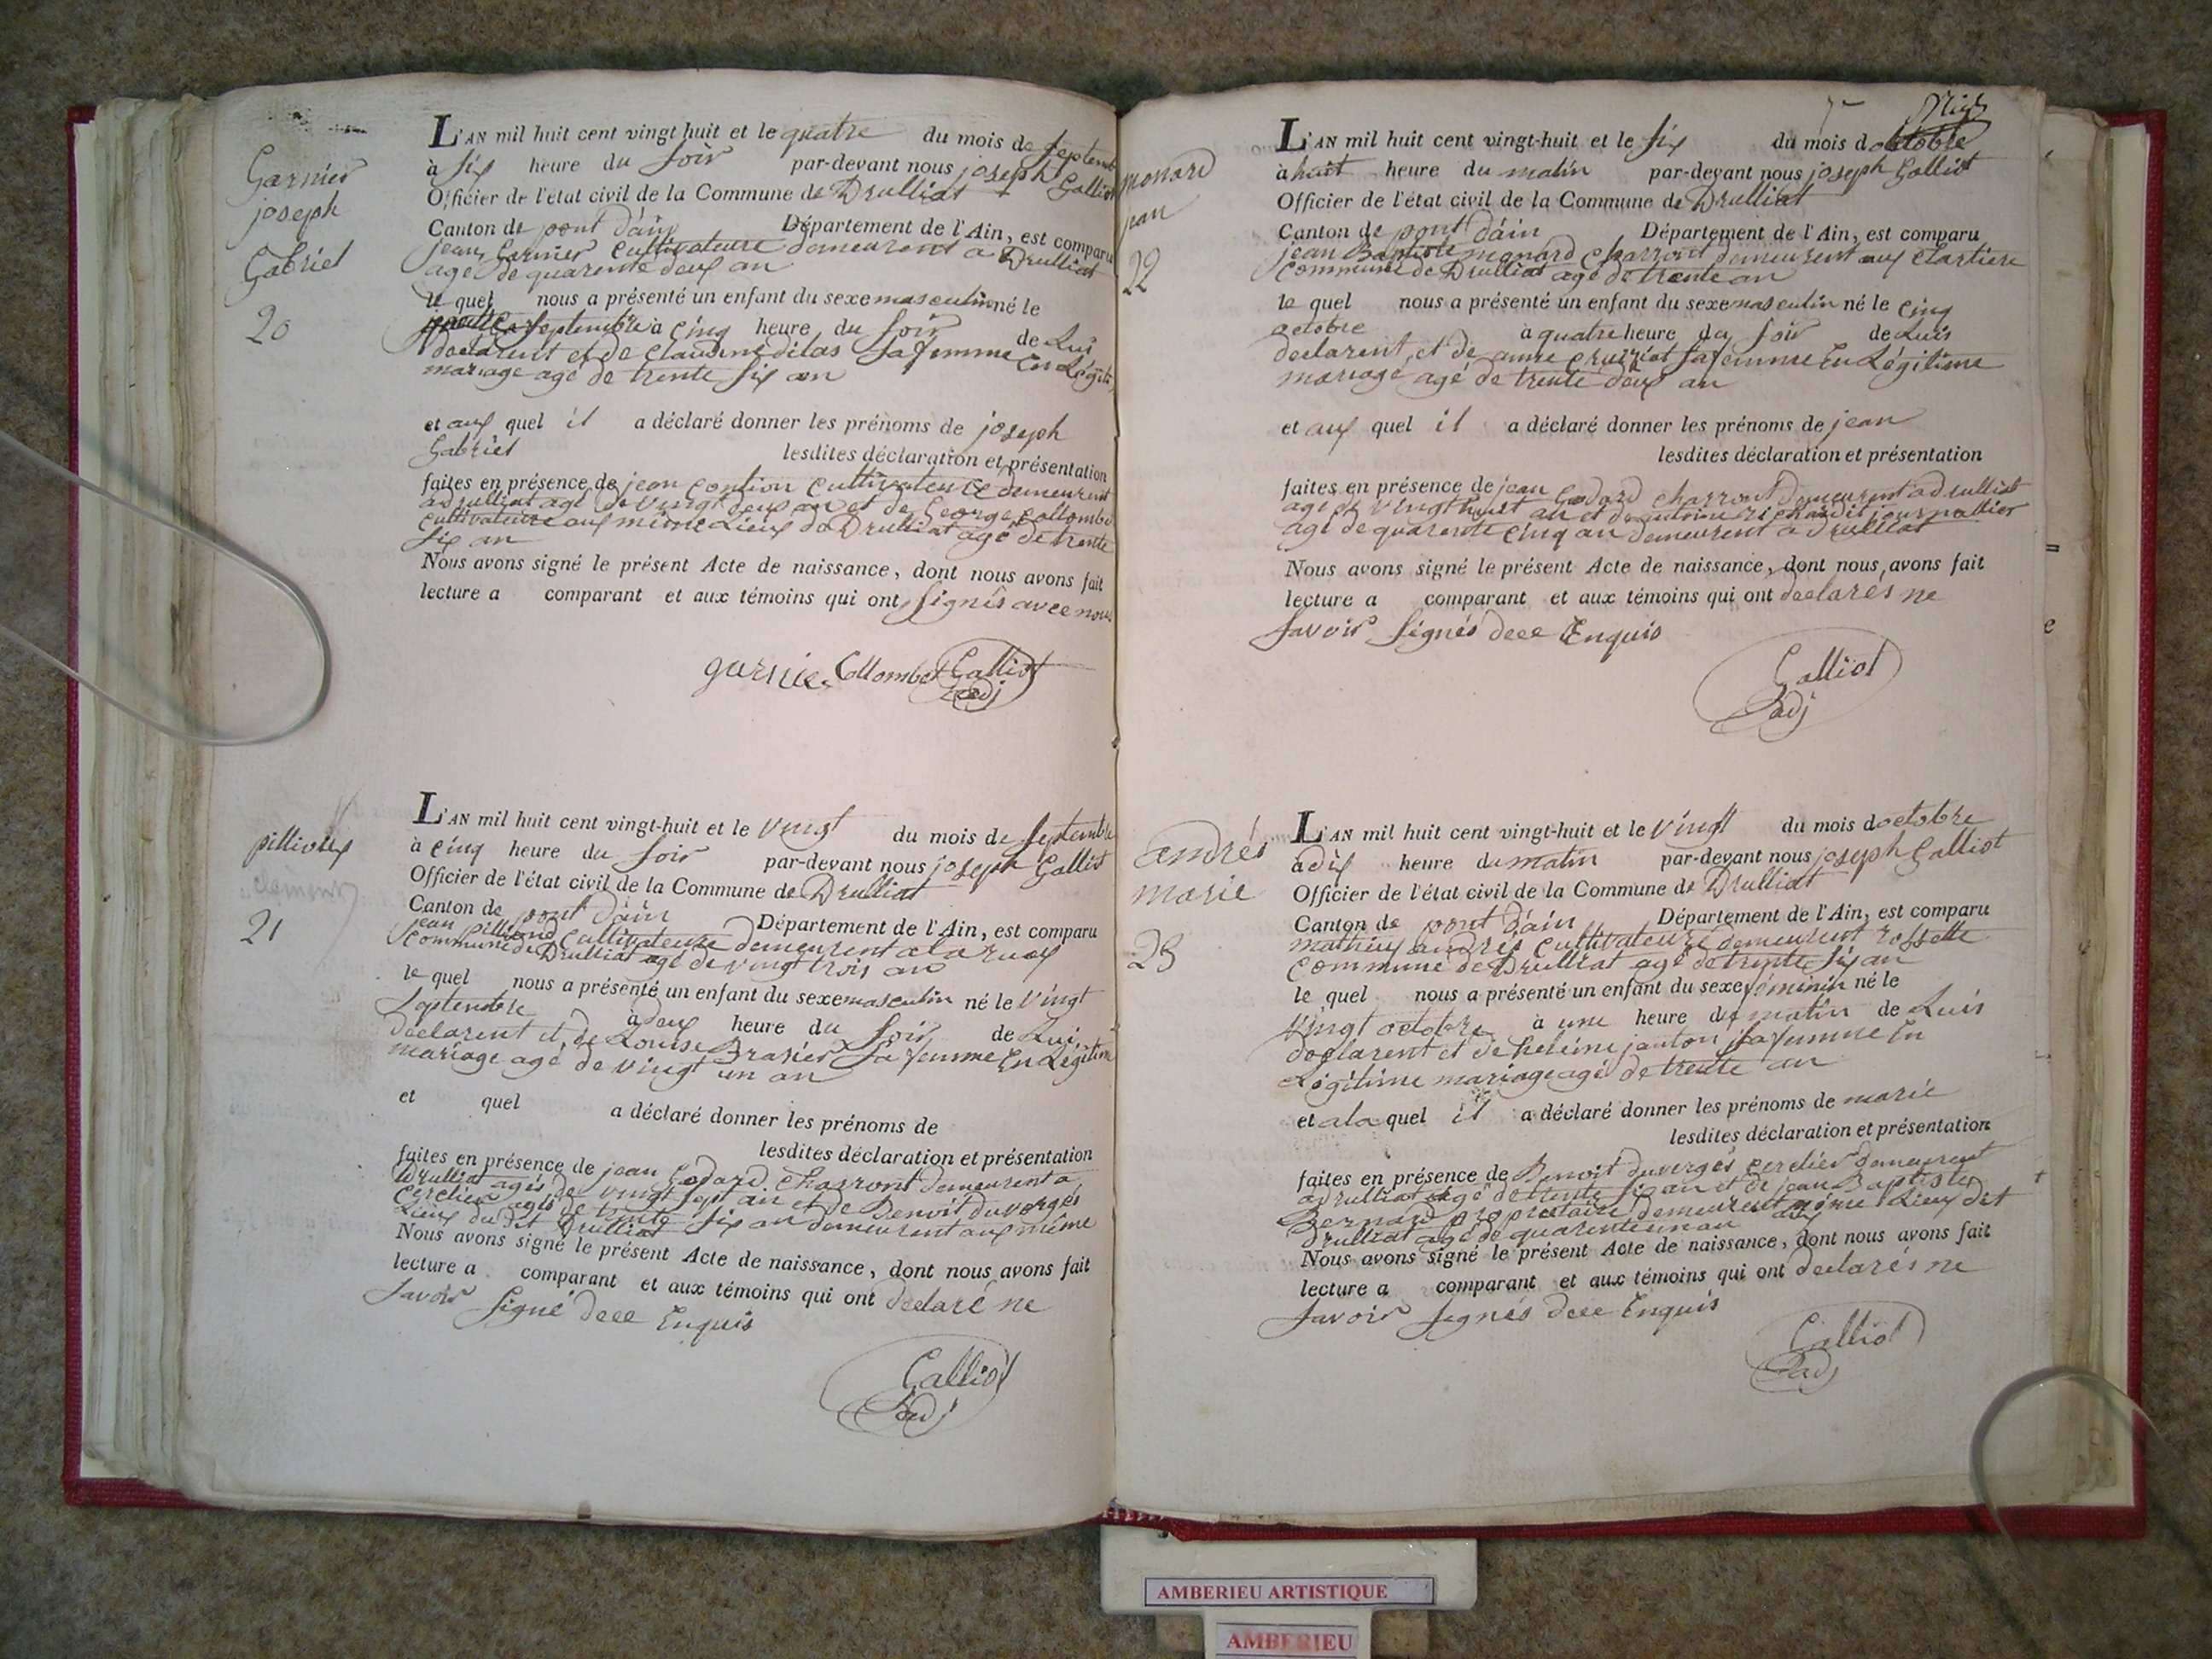 Garnier
joseph
Gabriel
20
L'AN mil huit cent vingt huit et le quatre du mois de septemb
à six heure du soir par-devant nous joseph Galliot
Officier de l'état civil de la Commune de Drulliat
Canton de pont d'ain Département de l'Ain, est comparu
jean Garnier Cultivateure demeurent a Drulliat
agé de quarente deux an
le quel nous a présenté un enfant du sexe masculin né le
septembre à cinq heure du soir de Lui
declarent et de Claudine dilas sa femme En Légiti
mariage agé de trente six an
et aux quel il a déclaré donner les prénoms de joseph
Gabriel lesdites déclaration et présentation
faites en présence de jean contion Cultivateure demeurent
a drulliat agé de vingt deux an et de George Collombe
Cultivateure aux même Lieux de Drulliat agé de trente
six an
Nous avons signé le présent Acte de naissance, dont nous avons fait
lecture a comparant et aux témoins qui ont signés avec nous
garnier Collombet Galliot
adj
pilliond
clement
21
L'AN mil huit cent vingt-huit et le vingt du mois de septembre
à cinq heure du soir par-devant nous joseph Galliot
Officier de l'état civil de la Commune de Drulliat
Canton de pont d'ain Département de l'Ain, est comparu
jean pilliond Cultivateure demeurent a la ruax
Commune de Drulliat agé de vingt trois an
le quel nous a présenté un enfant du sexe masculin né le vingt
septembre à deux heure du soir de Lui
declarent et de Louise Brasier sa femme En Légitime
mariage agé de vingt un an
et quel a déclaré donner les prénoms de
lesdites déclaration et présentation
faites en présence de jean Godard charront demeurent a
drulliat agés de vingt sept an et de Benoit duvergés
Cerclier agés de trente six an demeurent aux même
Lieux du dit Drulliat
Nous avons signé le présent Acte de naissance, dont nous avons fait
lecture a comparant et aux témoins qui ont declaré ne
savoir signé dece Enquis
Galliot
adj
monard
jean
22
L'AN mil huit cent vingt-huit et le six du mois d octobre
à huit heure du matin par-devant nous joseph Galliot
Officier de l'état civil de la Commune de Drulliat
Canton de pont d'ain Département de l'Ain, est comparu
jean Baptiste monard charront demeurent aux Clartiere
Commune de Drulliat agé de trente an
le quel nous a présenté un enfant du sexe masculin né le cinq
octobre à quatre heure du soir de Luis
declarent, et de anne cruiziat sa femme En Légitime
mariage agé de trente deux an
et aux quel il a déclaré donner les prénoms de jean
lesdites déclaration et présentation
faites en présence de jean Godard charront demeurent a drulliat
agé de vingt huit an et de antoine richardit journallier
agé de quarente cinq an demeurent a drulliat
Nous avons signé le présent Acte de naissance, dont nous avons fait
lecture a comparant et aux témoins qui ont declarés ne
savoir signés dece Enquis
Galliot
adj
andrés
marie
23
L'AN mil huit cent vingt-huit et le vingt du mois d octobre
à dix heure du matin par-devant nous joseph Galliot
Officier de l'état civil de la Commune de Drulliat
Canton de pont d'ain Département de l'Ain, est comparu
mathieu andrés Cultivateure demeurent rossette
Commune de Drulliat agé de trente six an
le quel nous a présenté un enfant du sexe féminin né le
vingt octobre à une heure du matin de Luis
declarent et de heleine janton sa femme En
Légitime mariage agé de trente an
et ala quel il a déclaré donner les prénoms de marie
lesdites déclaration et présentation
faites en présence de Benoit duvergés cerclier demeurent
a drulliat agé de trente six an et de jean Baptiste
Bernard propriétaire demeurent aux même Lieux dit
drulliat agé de quarente un an
Nous avons signé le présent Acte de naissance, dont nous avons fait
lecture a comparant et aux témoins qui ont declarés ne
savoir signés dece Enquis
Galliot
adj
AMBERIEU ARTISTIQUE
AMBERIEU